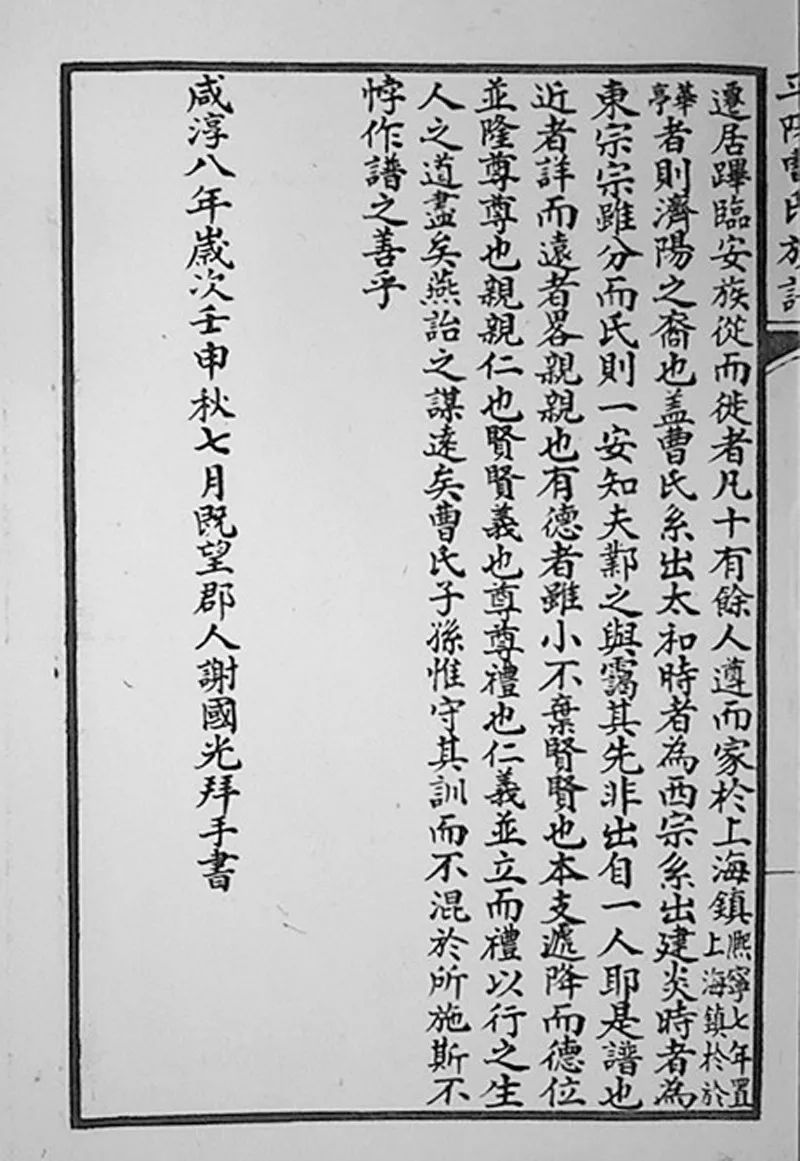 平陽曹氏族譜
遷居蹕臨安族從而徙者凡十有餘人遵而家於上海鎮熈寧七年置上海鎮於於
華亭者則濟陽之裔也盖曹氏系出太和時者為西宗系出建炎時者為
東宗宗雖分而氏則一安知夫鄴之與靄其先非出自一人耶是譜也
近者詳而遠者畧親親也有德者雖小不棄賢賢也本支遞降而德位
並隆尊尊也親親仁也賢賢義也尊尊禮也仁義並立而禮以行之生
人之道盡矣燕詒之謀遠矣曹氏子孫惟守其訓而不混於所施斯不
悖作譜之善乎
咸淳八年嵗次壬申秋七月既望郡人謝國光拜手書